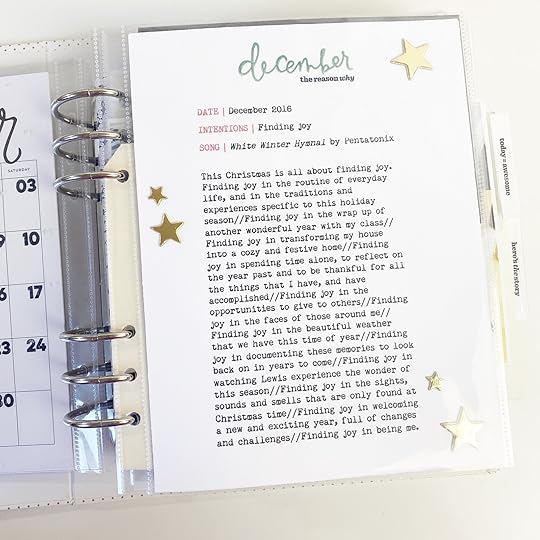 december
the reason why
DATE | December 2016
INTENTIONS | Finding joy
SONG | White Winter Hymnal by Pentatonix
This Christmas is all about finding joy.
Finding joy in the routine of everyday
life, and in the traditions and
experiences specific to this holiday
season//Finding joy in the wrap up of
another wonderful year with my class//
Finding joy in transforming my house
into a cozy and festive home//Finding
joy in spending time alone, to reflect on
the year past and to be thankful for all
the things that I have, and have
accomplished//Finding joy in the
opportunities to give to others//Finding
joy in the faces of those around me//
Finding joy in the beautiful weather
that we have this time of year//Finding
joy in documenting these memories to look
back on in years to come//Finding joy in
watching Lewis experience the wonder of
this season//Finding joy in the sights,
sounds and smells that are only found at
Christmas time//Finding joy in welcoming
a new and exciting year, full of changes
and challenges//Finding joy in being me.
r
SATURDAY
03
9 10
16 17
23 24
30
today = awesome
here's the story